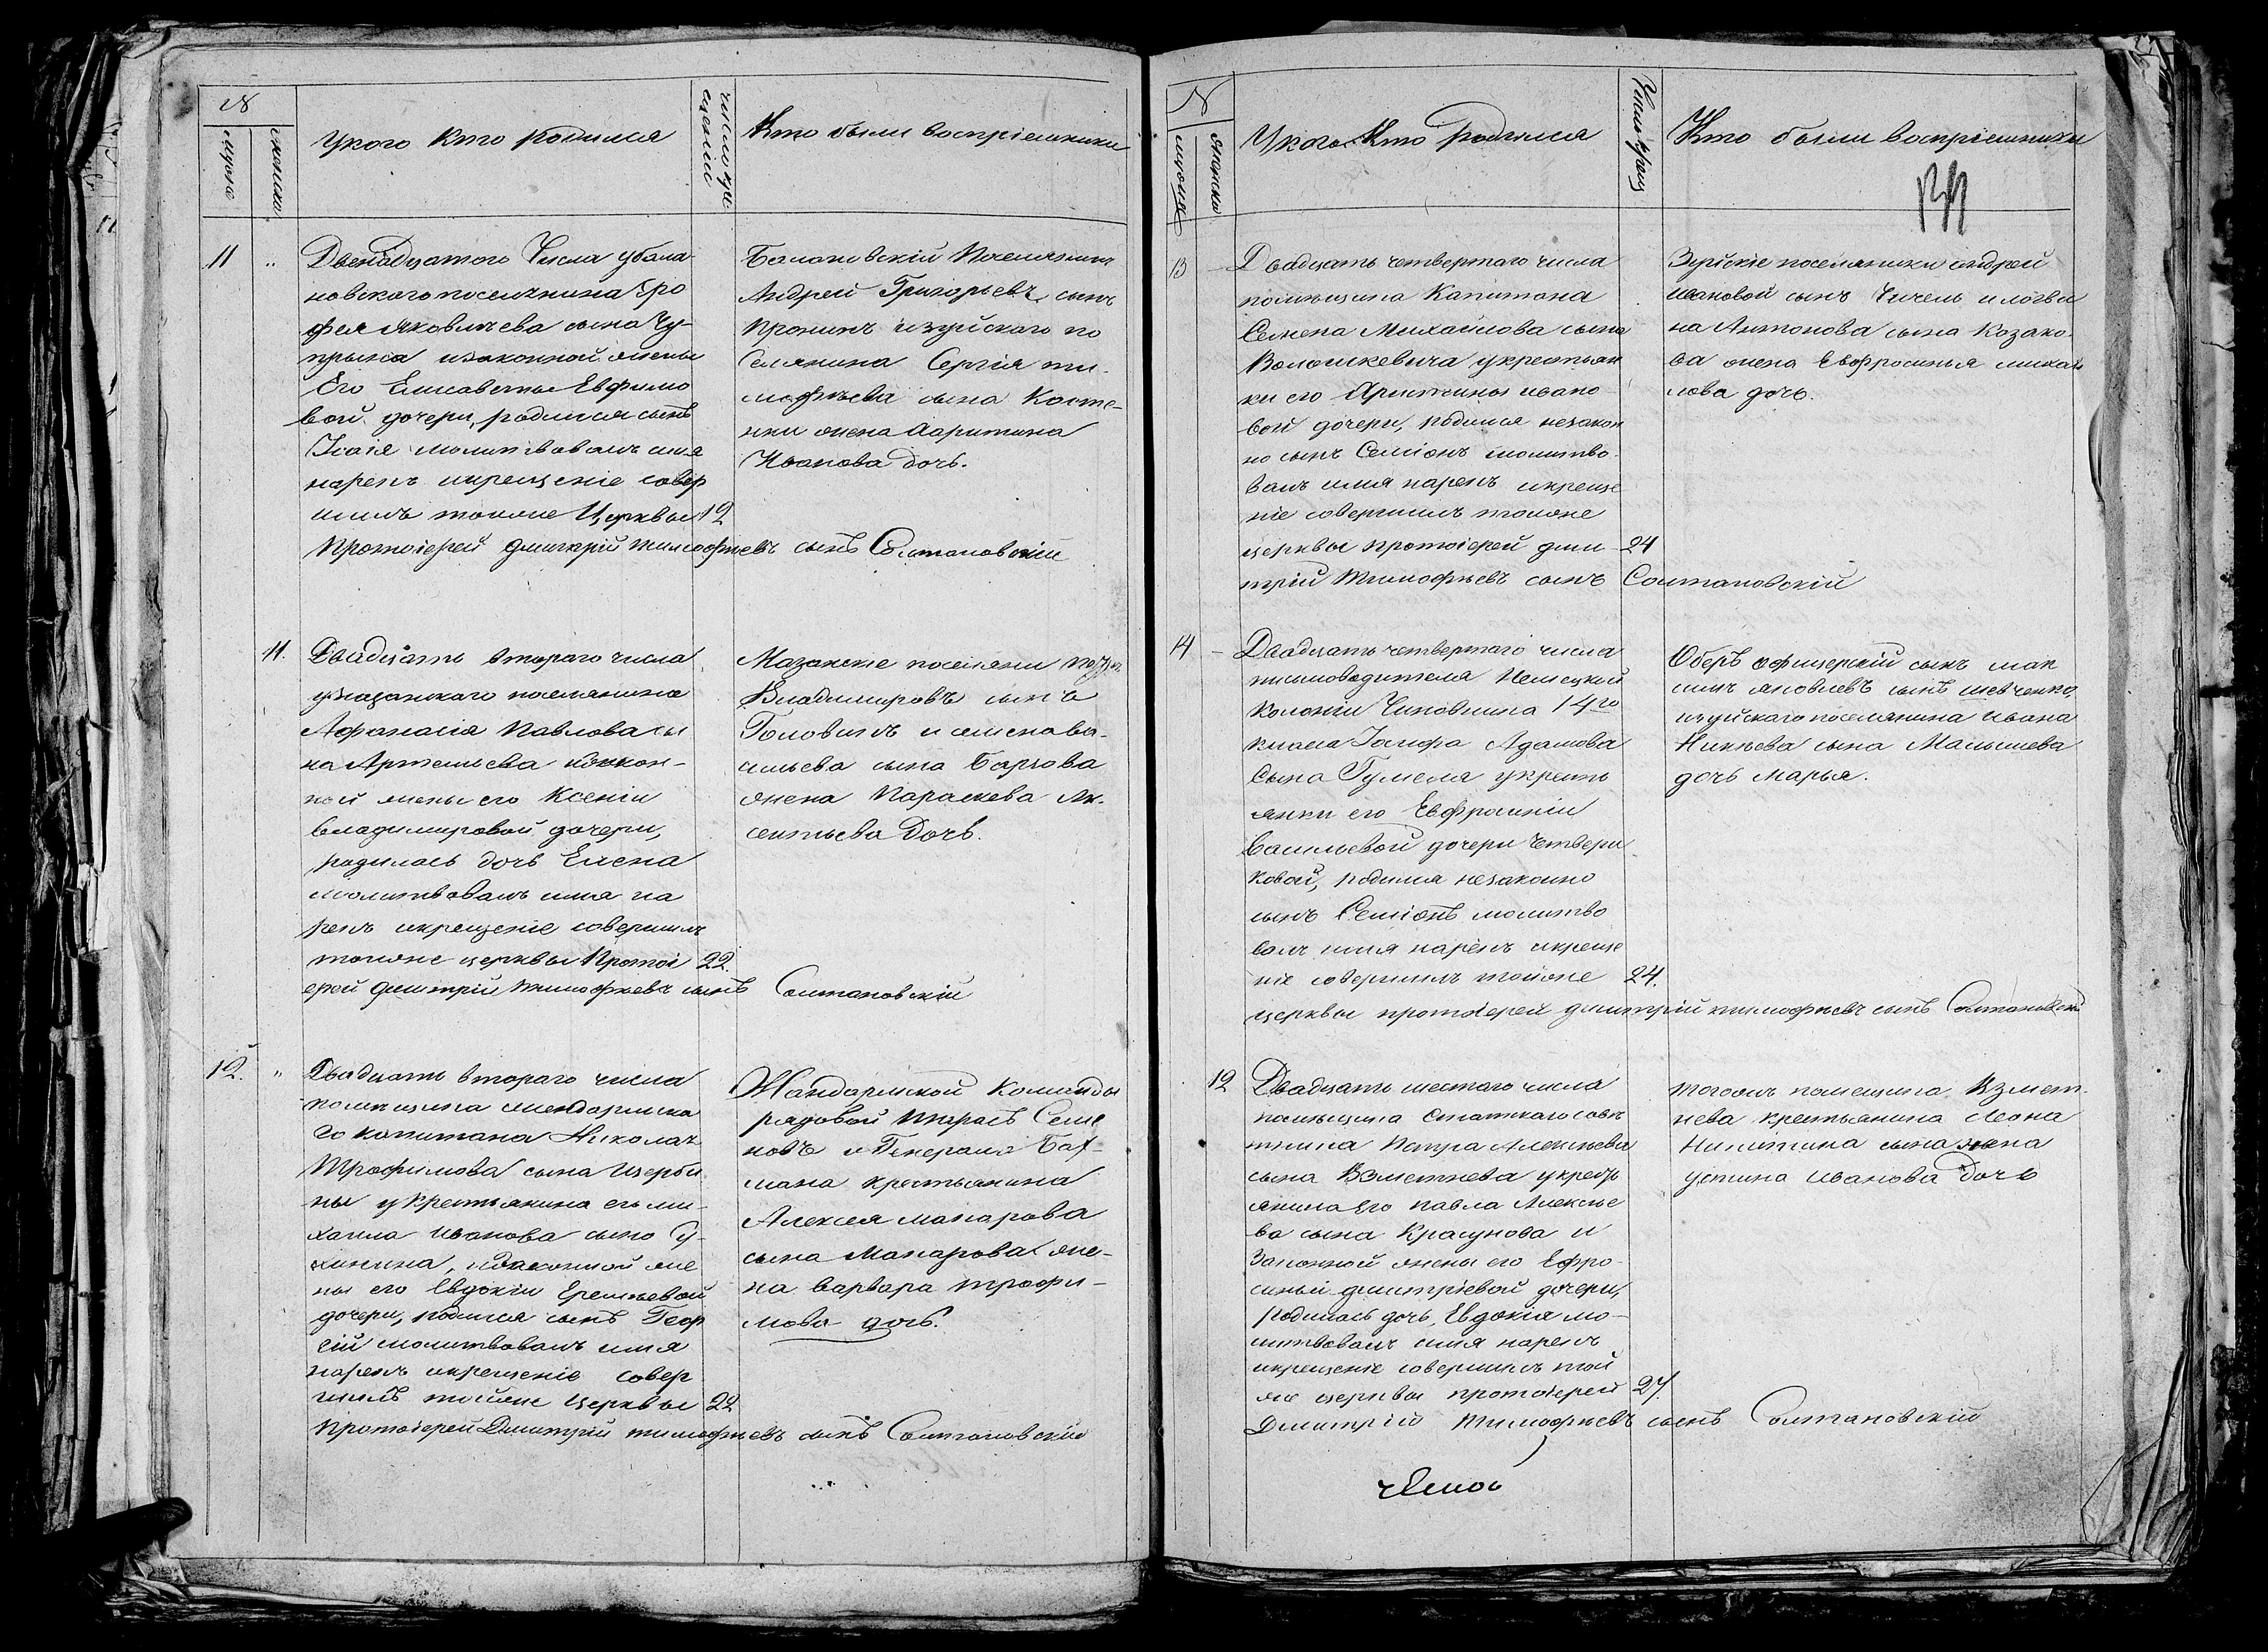 №
мужска
женска
У кого кто родился
число кре
щения
Кто были воспріемники
11 „ Двенадцатого Числа у бала
новского поселянина Еро
фея Яковлева сына Чу-
прына и законной жены
Его Елисаветы Евфимо
вой дочери, родился сынъ
Исаія молитвовалъ имя
нарекъ и крещеніе совер
шилъ тоиже Церквы 12
Протоіерей Димитрій Тимофеевъ сынъ Солтановскій
Балановскій Поселянинъ
Андрей Григорьевъ сынъ
Пронинъ и зуйского по
Селянина Сергія ти-
мофѣева сына Косте-
нки жена Харитина
Иванова дочь.
11. Двадцать втораго числа
у мазанского поселянина
Афанасія Павлова сы
на Артемьева и закон-
ной жены его Ксеніи
Владимировой дочери,
родилась дочь Елена
молитвовалъ имя на
рекъ и крещеніе совершилъ
тоиже церквы Протоі 22.
ерей Димитрій Тимофеевъ сынъ Солтановскій
Мазанские поселяни
Владимировъ сынъ
Головинъ и Семена Ва-
сильева сына
жена Параскева Ак-
сентьева Дочь.
12. „ Двадцать втораго числа
помѣщика жендармска
го капитана Николая
Трофимова сына Щерби
ны у крестьянина его ми-
хаила Иванова сына
и законной же
ны его Евдокіи Еремѣевой
дочери, родился сынъ Геор
гій молитвовалъ имя
нарекъ и крещеніе совер
шилъ тоиже Церквы 22
Протоіерей Димитрій тимофеевъ сынъ Солтановскій
Жандармской Команды
рядовой Тарасъ Семе
новъ и Генерала Бах-
мана крестьянина
Алексея макарова
сына Макарова же-
на варвара трофи-
мова дочь.
№
мужска
женска
У кого Кто родился
Число крещ
Кто были воспріемники
13 – Двадцать четвертаго числа
помѣщика Капитана
Семена Михайлова сына
Волошкевича у крестьян
ки его Христины ивано-
вой дочери, родился незакон
но сынъ Семіонъ молитво-
валъ имя нарекъ и креще
ніе совершилъ тоиже
церквы протоіерей дми- 24
трій Тимофѣевъ сынъ Солтановскій
Зуйскіе поселянинъ андрей
ивановой сынъ Чичель и логви
на Антонова сына Козако-
ва жена Евфросинья михаи
лова дочь.
14 – Двадцать четвертаго числа
писмоводителя Немецкой
Колоніи Чиновника 14го
класа Іосифа Адамова
Сына Гумеля у кресть
янки его Евфросиніи
Васильевой дочери Четвери
ковой, родился незаконно
сынъ Семіонъ молитво
валъ имя нарекъ и креще
ніе совершилъ тоиже 24.
церквы протоіерей димитрій тимофѣевъ сынъ Солтановскій
Оберъ офицерскій сынъ мак
симъ яковлевъ сынъ шевченко,
и зуйскаго поселянина ивана
Никиева сына Малышева
дочь марья.
12 Двадцать шестаго числа
помѣщика Статскаго совѣ
тника Петра Алексѣева
сына Взметнева у кресть
янина Его павла Алексѣе
ва сына Красунова и
Законной жены его Ефро-
синьи димитріевой дочери,
родилась дочь, Евдокія мо-
литвовалъ имя нарекъ
и крещеніе совершилъ той
же церквы протоіерей 27.
Димитрій Тимофѣевъ сынъ Солтановскій
тогожъ помещика Взмет-
нева крестьянина Леона
Никитина сына жена
устина иванова Дочь